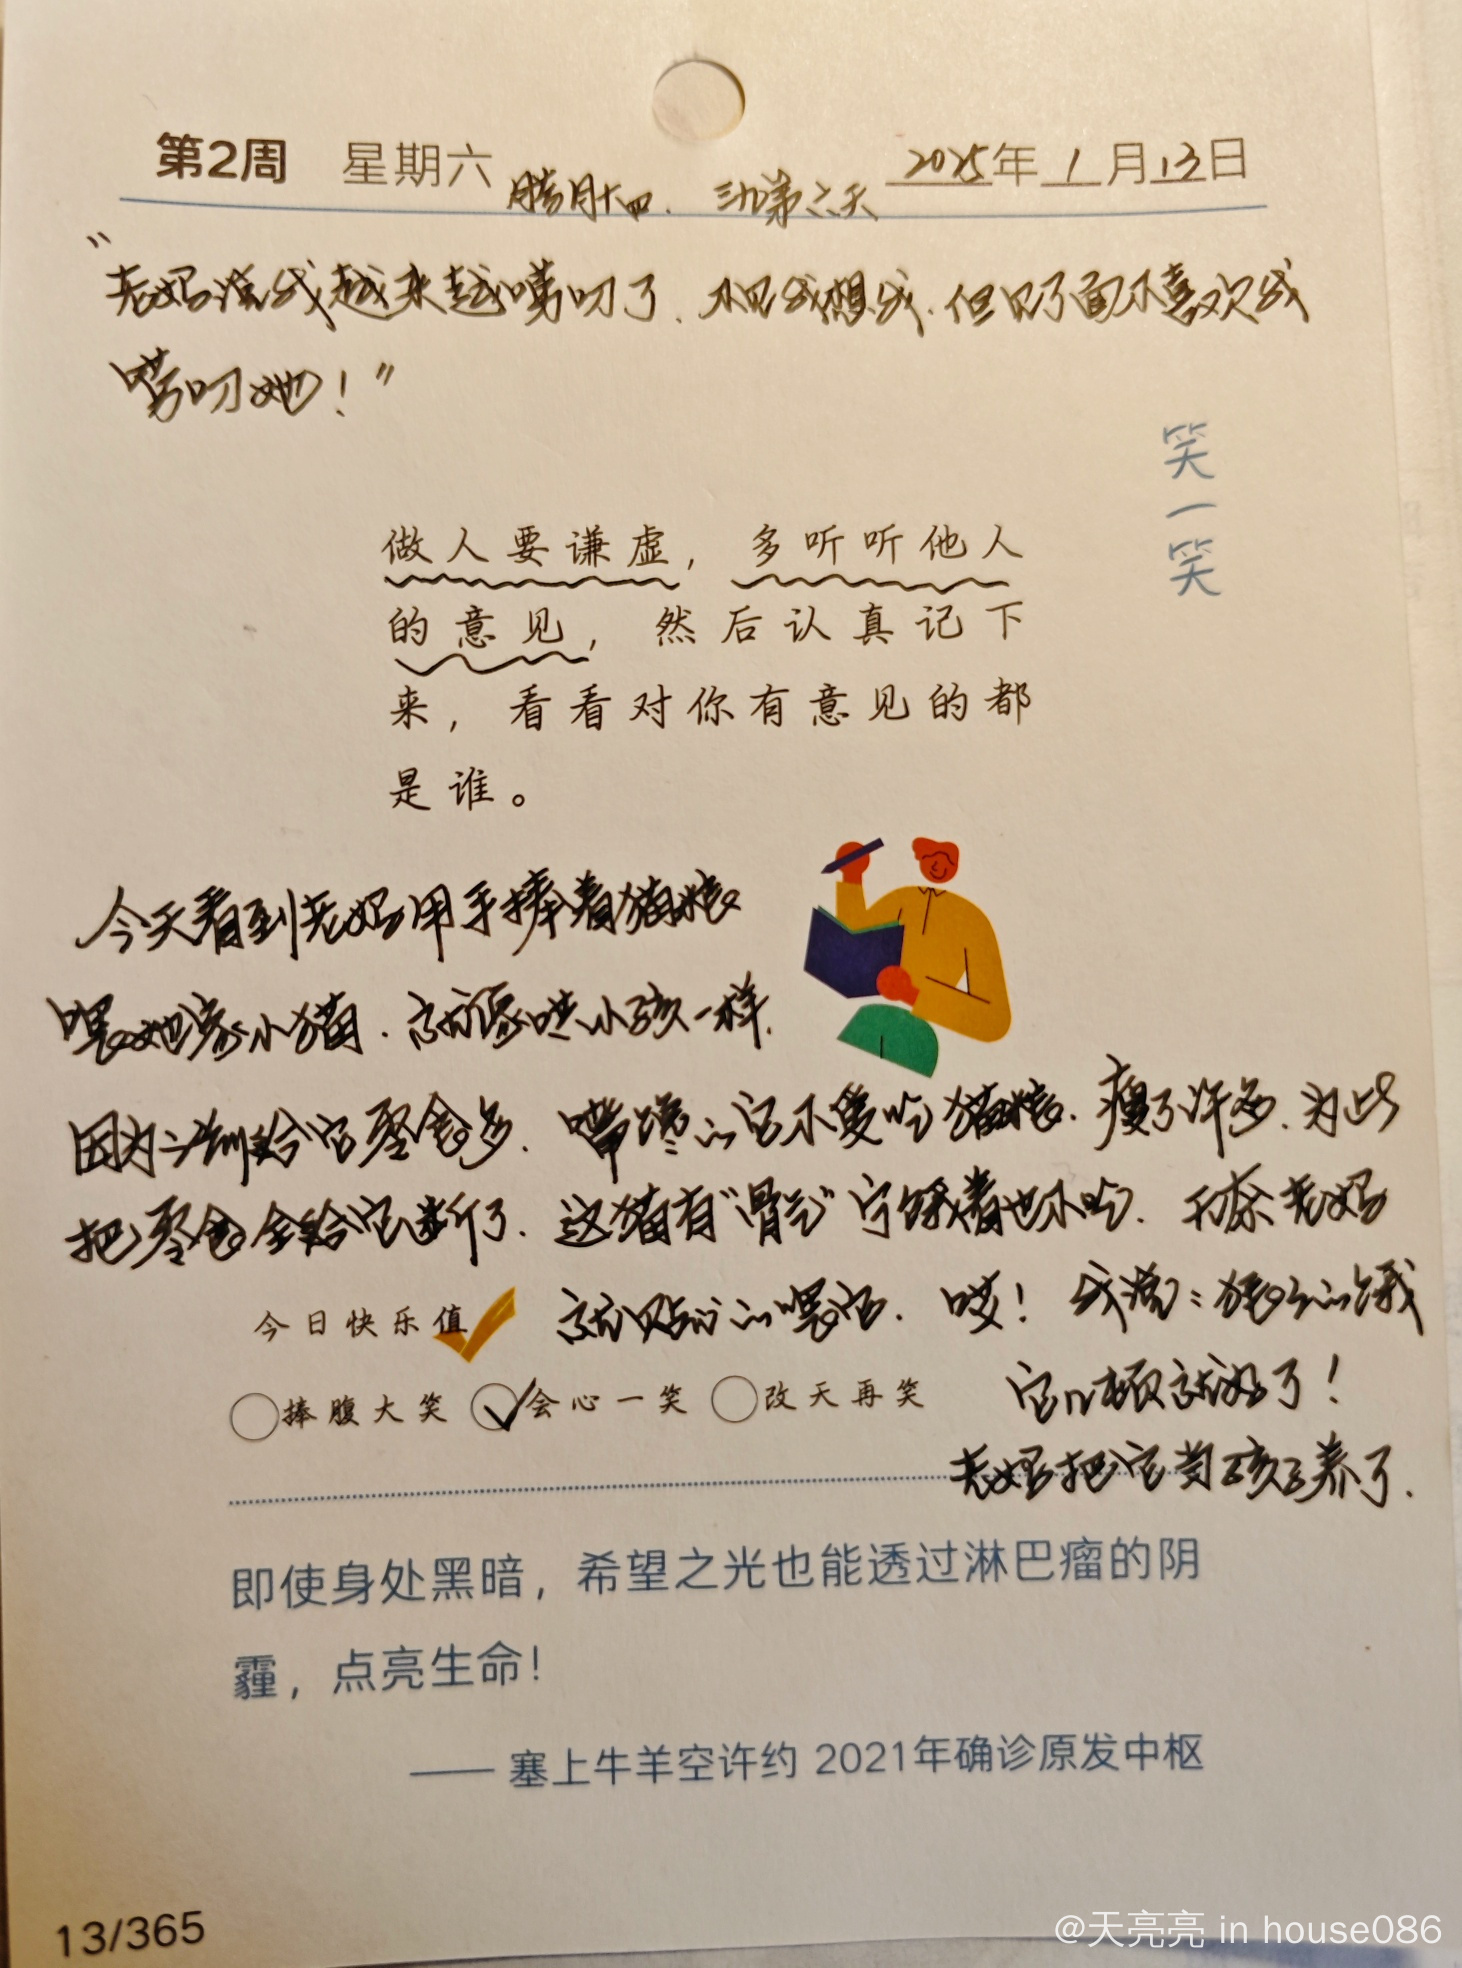 第2周 星期六 腊月十四. 三九第六天 2025年1月13日
“老妈说我越来越唠叨了.不见我想我.但见了面不喜欢我
唠叨她！”
笑一笑
做人要谦虚，多听听他人
的意见，然后认真记下
来，看看对你有意见的都
是谁。
今天看到老妈用手捧着猫粮
喂她家小猫.就像哄小孩一样.
因为给它零食多.嘴馋的它不爱吃猫粮.瘦了许多.为此
把零食全给它断了.这猫有“骨气”宁饿着也不吃.无奈老妈
就这么喂它.哎！我说：狠心的饿
它几顿就好了！
老妈把它当孩子养了.
今日快乐值
捧腹大笑 会心一笑 改天再笑
即使身处黑暗，希望之光也能透过淋巴瘤的阴
霾，点亮生命！
—— 塞上牛羊空许约 2021年确诊原发中枢
13/365
@天亮亮 in house086